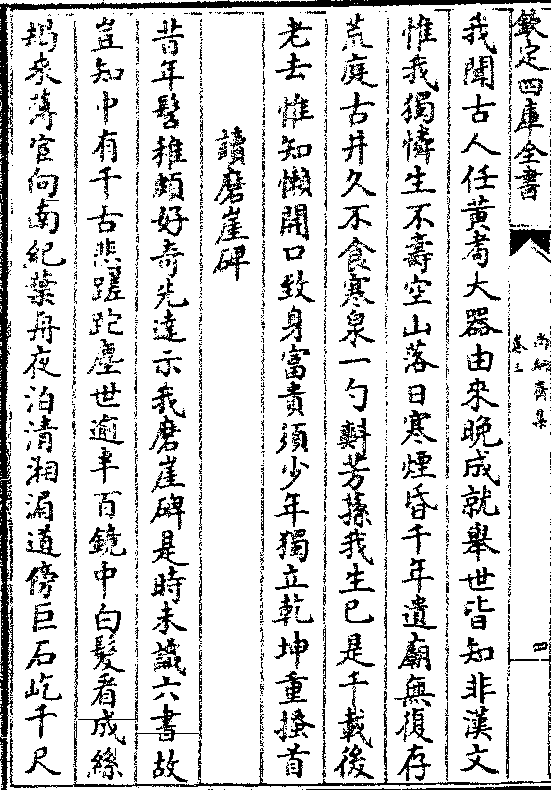 欽定四庫全書
尚絅齋集
卷三
四
我聞古人任黃耇大器由來晚成就舉世皆知非漢文
惟我獨憐生不壽空山落日寒煙昏千年遺廟無復存
荒庭古井久不食寒泉一勺㪺芳蓀我生已是千載後
老去惟知懶開口致身富貴須少年獨立乾坤重搔首
讀磨崖碑
昔年髫稚頗好奇先達示我磨崖碑是時未識六書故
豈知中有千古悲蹉跎塵世逾半百鏡中白髮看成絲
朅來薄宦向南紀葉舟夜泊清湘涘道傍巨石屹千尺